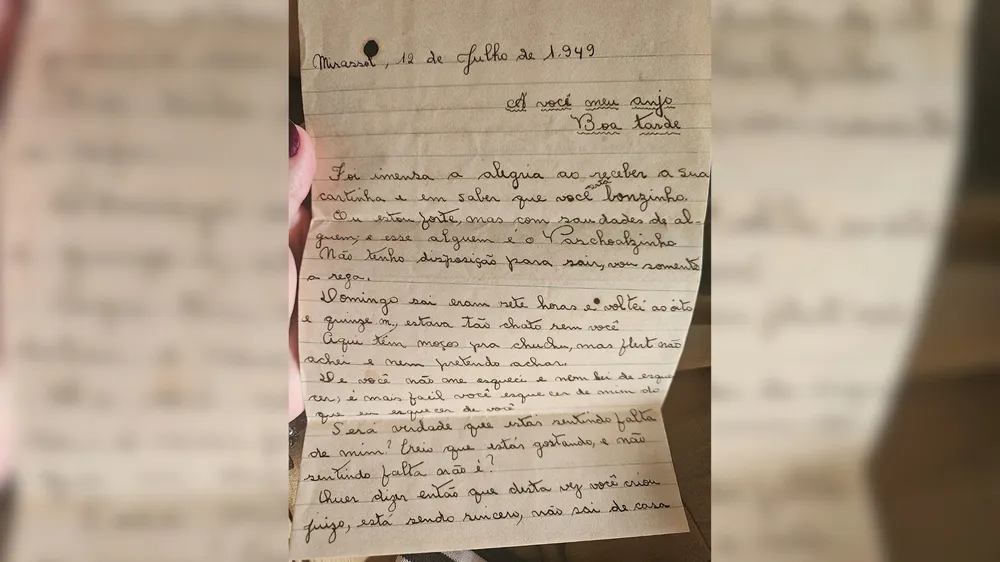 Mirassol, 12 de Julho de 1.949
A você meu anjo
Boa tarde
Foi imensa a alegria ao receber a sua
cartinha e em saber que você está bonzinho.
Eu estou forte, mas com saudades de al-
guem; e esse alguem é o Paschoalzinho
Não tenho disposição para sair, vou somente
a reza.
Domingo sai eram sete horas e voltei as oito
e quinze m., estava tão chato sem você
Aqui têm moços pra chuchu, mas flert não
achei e nem pretendo achar.
De você não me esqueci e nem hei de esque
cer, é mais facil você esquecer de mim do
que eu esquecer de você
Será verdade que estás sentindo falta
de mim? Creio que estás gostando, e não
sentindo falta não é?
Quer dizer então que desta vez você criou
juizo, está sendo sincero, não sai de casa